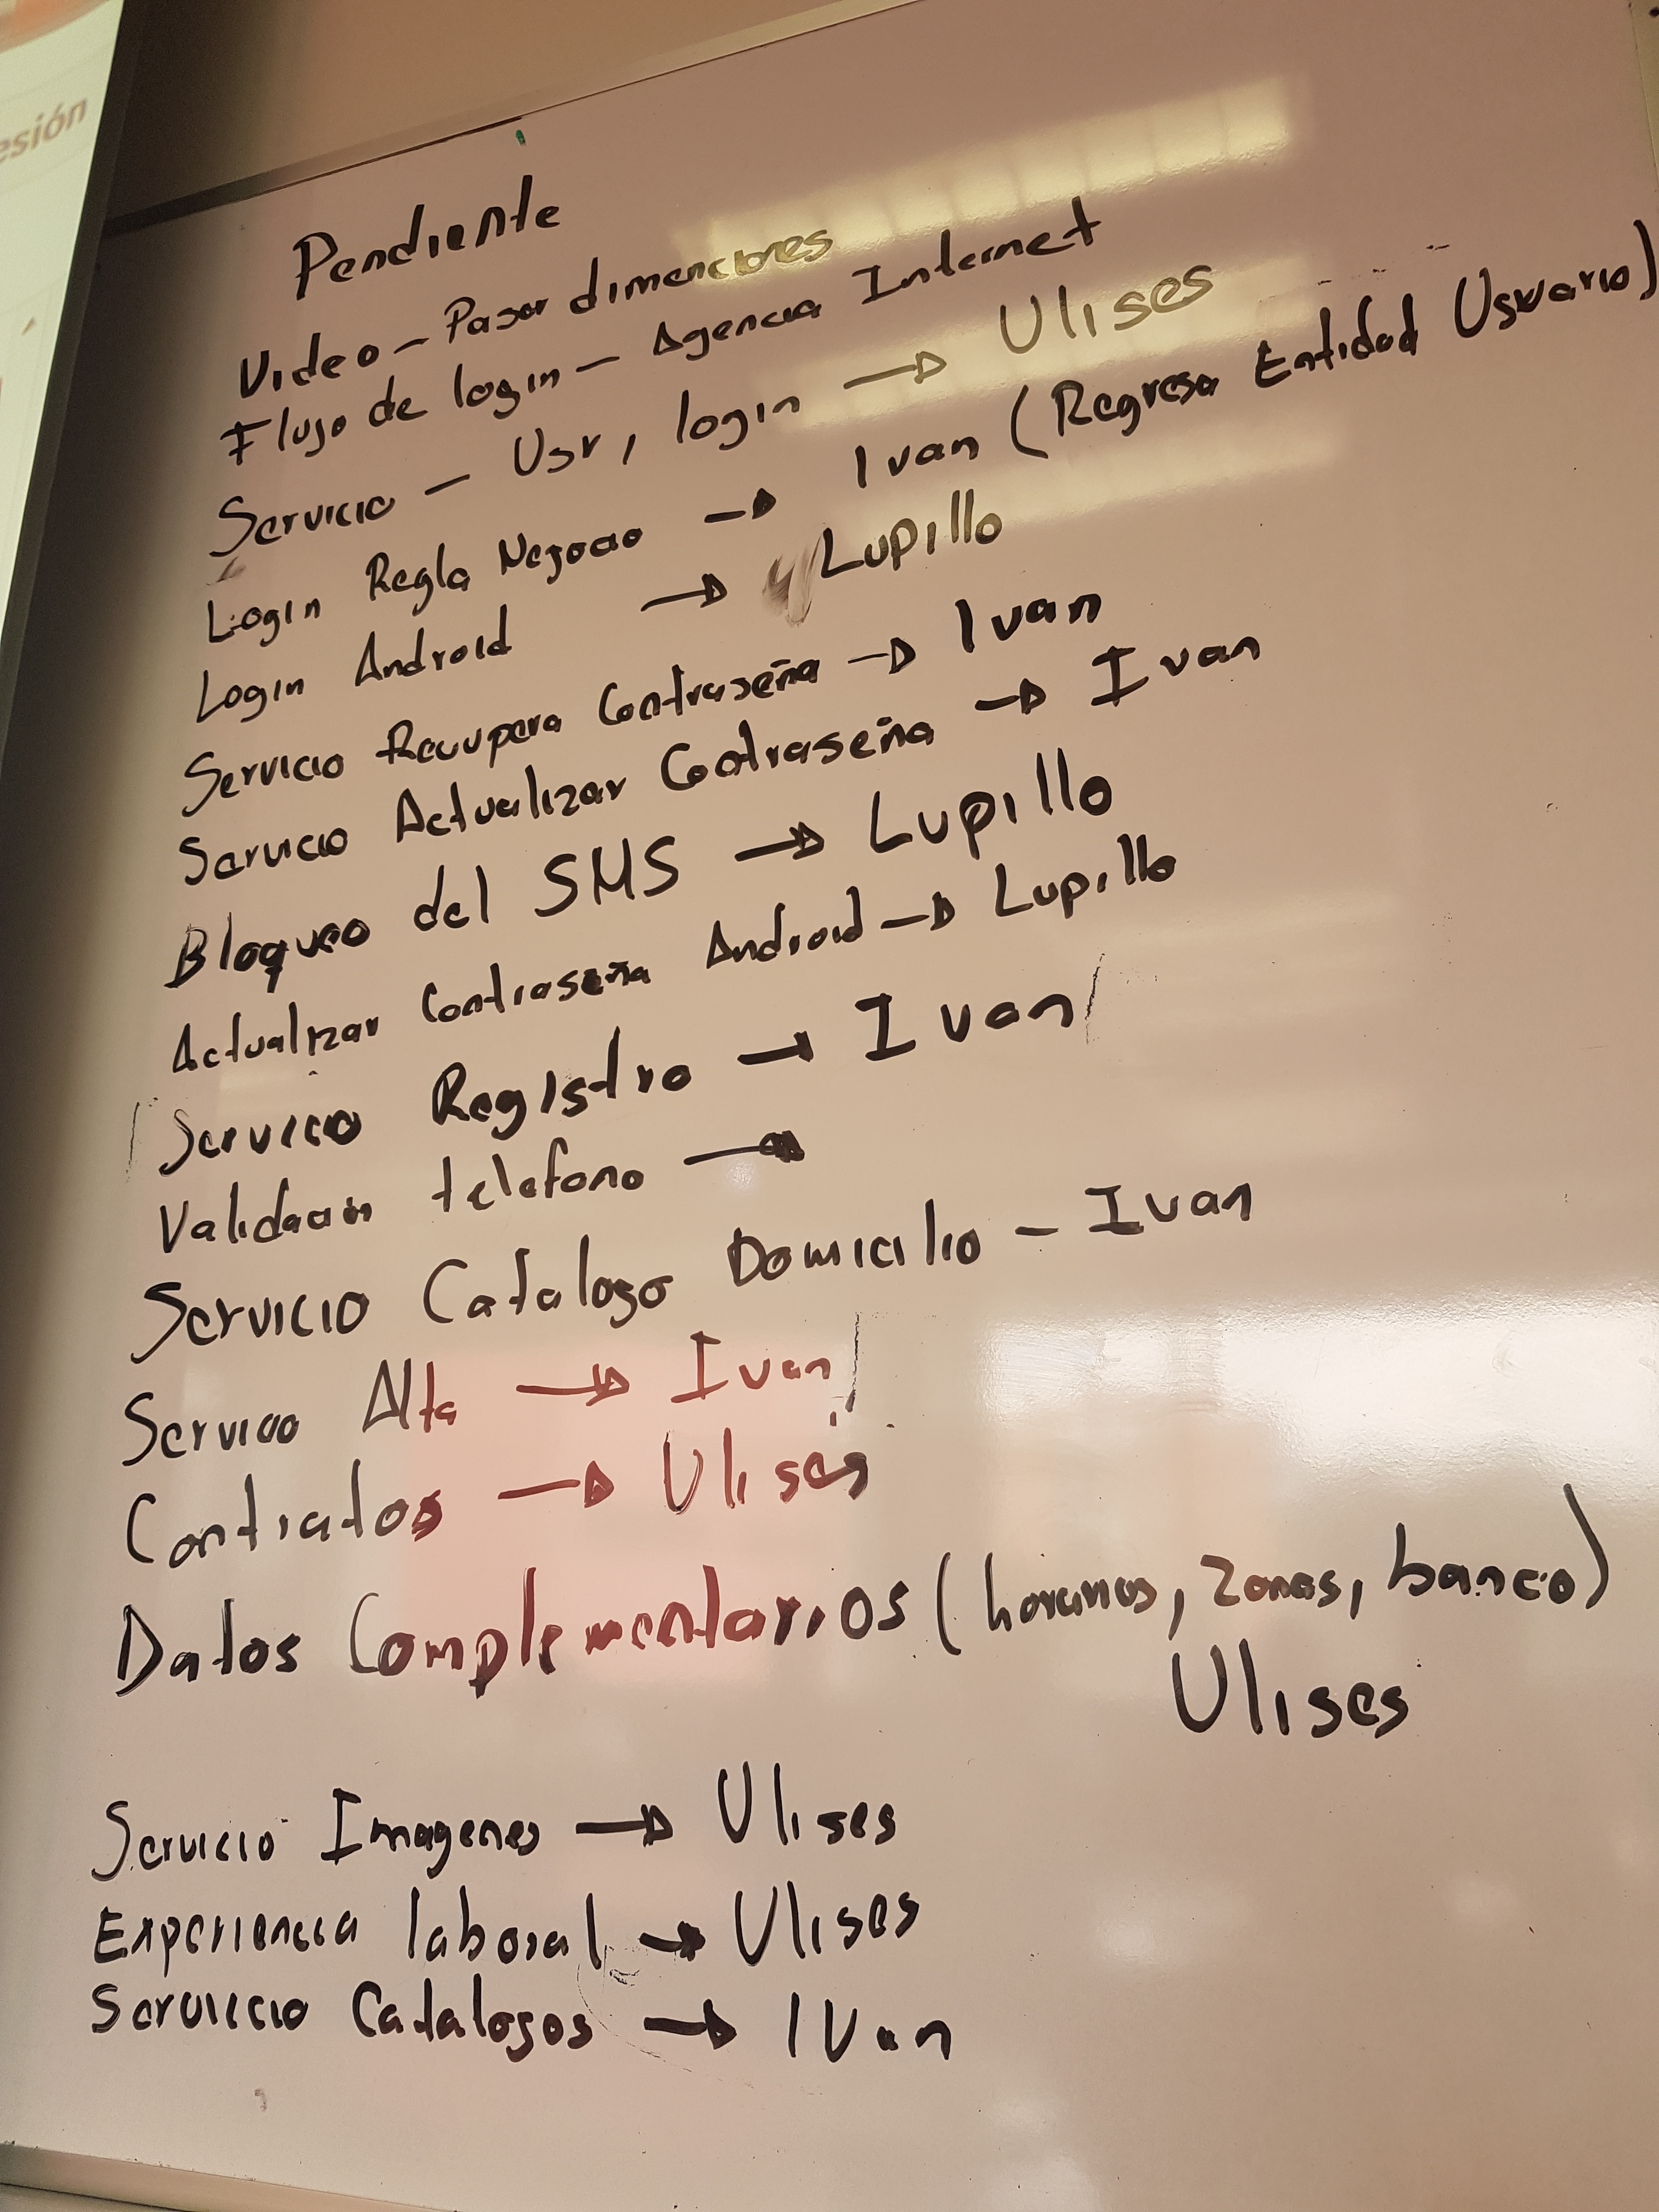 esión
Pendiente
Video - Pasar dimenciones
Flujo de login - Agencia Internet
Servicio - Usr, login → Ulises
Login Regla Negocio → Ivan (Regresa Entidad Usuario)
Login Android → Lupillo
Servicio Recupera Contraseña → Ivan
Servicio Actualizar Contraseña → Ivan
Bloqueo del SMS → Lupillo
Actualizar Contraseña Android → Lupillo
Servicio Registro → Ivan
Validacion telefono →
Servicio Catalogo Domicilio - Ivan
Servicio Alta → Ivan
Contratos → Ulises
Datos Complementarios (horarios, zonas, banco)
Ulises
Servicio Imagenes → Ulises
Experiencia laboral → Ulises
Servicio Catalogos → Ivan